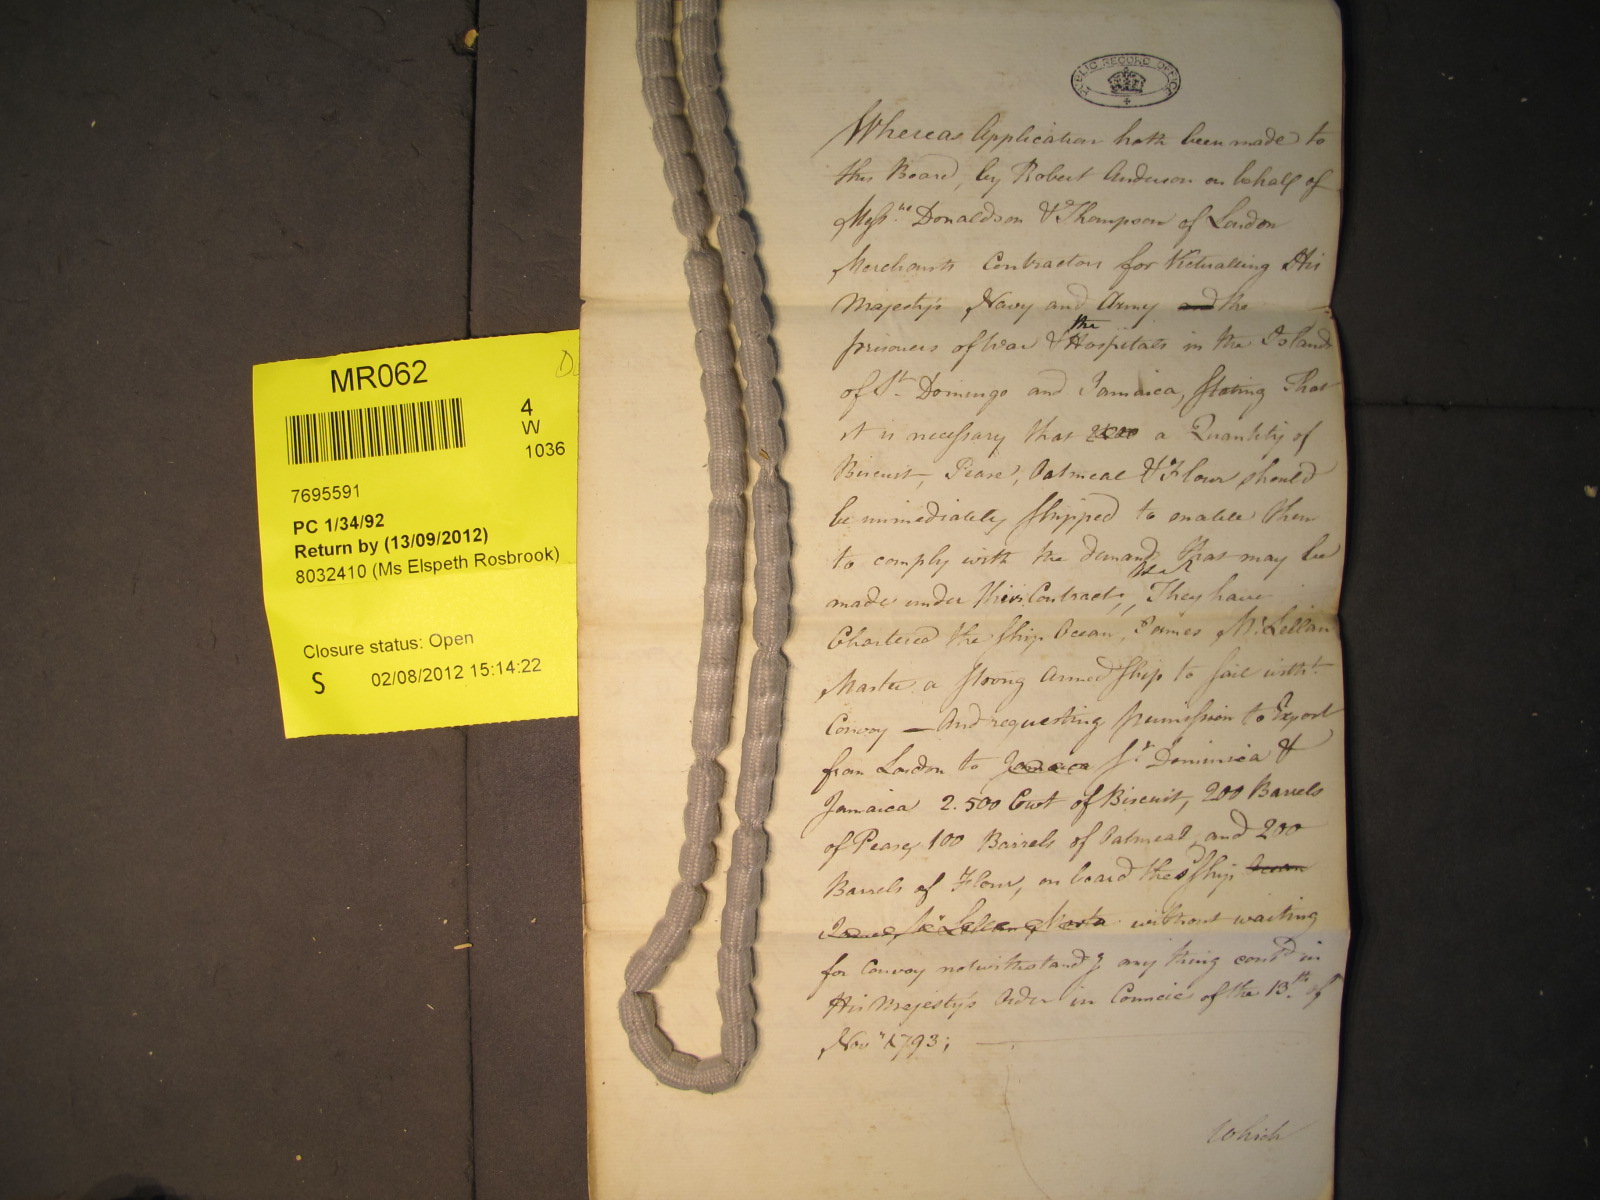 MR062
4
W
1036
7695591
PC 1/34/92
Return by (13/09/2012)
8032410 (Ms Elspeth Rosbrook)
Closure status: Open
S 02/08/2012 15:14:22
PUBLIC RECORD OFFICE
Whereas Application hath been made to
this Board, by Robert Anderson on behalf of
Messrs Donaldson & Thompson of London
Merchants Contractors for Victualling His
Majesty's Navy and Army and the
prisoners of War & the Hospitals in the Islands
of St. Domingo and Jamaica, stating That
it is necessary that a Quantity of
Biscuit, Pease, Oatmeal & Flour should
be immediately shipped to enable them
to comply with the demands that may be
made under their Contract, They have
Chartered the Ship Ocean, James McLellan
Master a strong Armed Ship to sail witht.
Convoy — And requesting permission to Export
from London to Jamaica St. Dominica &
Jamaica 2.500 Cwt of Biscuit, 200 Barrels
of Pease, 100 Barrels of Oatmeal, and 200
Barrels of Flour, on board the sd Ship Ocean
James McLellan Master without waiting
for Convoy notwithstandg any thing contd in
His Majesty's Order in Council of the 13.th of
Novr 1793;
Which